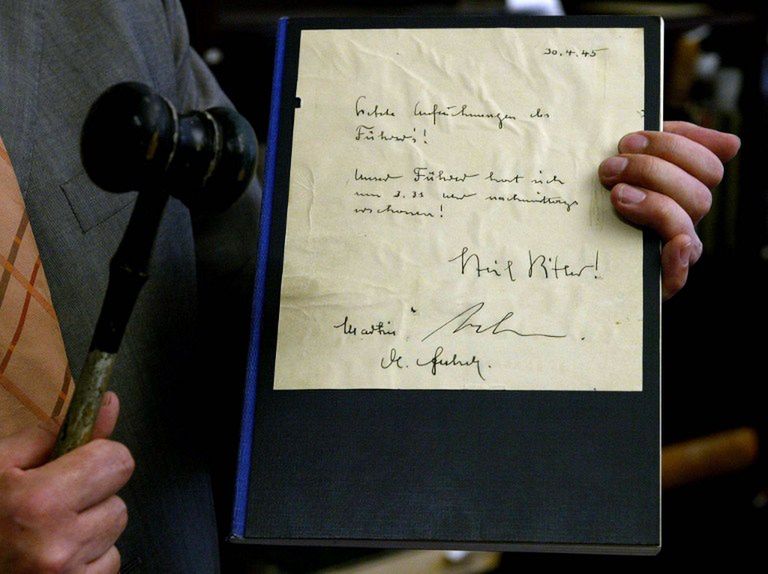 30.4.45
Letzte Aufzeichnungen des
Führers!
Unser Führer hat sich
um 3.35 Uhr nachmittags
erschossen!
Heil Hitler!
Martin
Dr.